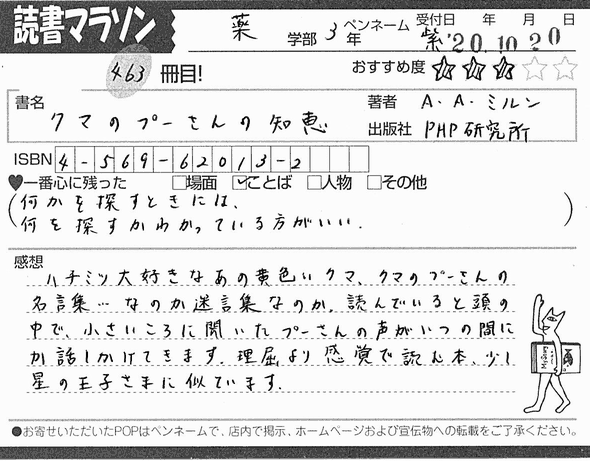 読書マラソン
薬 学部 3年 ペンネーム 紫 受付日 年 月 日
'20.10.20
463 冊目!
おすすめ度 ★★★☆☆
書名 クマのプーさんの知恵
著者 A.A.ミルン
出版社 PHP研究所
ISBN 4-569-62013-2
♥一番心に残った □場面 ☑ことば □人物 □その他
(何かを探すときには、
何を探すかわかっている方がいい.)
感想
ハチミツ大好きなあの黄色いクマ、クマのプーさんの
名言集…なのか迷言集なのか.読んでいると頭の
中で、小さいころに聞いたプーさんの声がいつの間に
か話しかけてきます.理屈より感覚で読む本、少し
星の王子さまに似ています.
●お寄せいただいたPOPはペンネームで、店内で掲示、ホームページおよび宣伝物への転載をご了承ください。